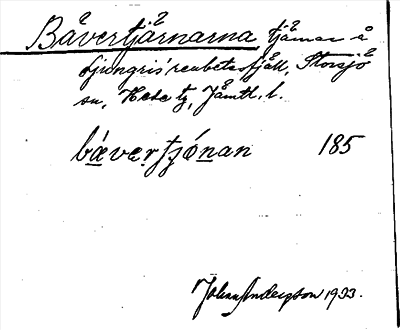 Bävertjärnarna tjärnar å
Ljungris'renbetesfjäll, Storsjö
sn, Hede tg, Jämtl. l.
bäver tjǿnan 185
Johan Anderson 1933.